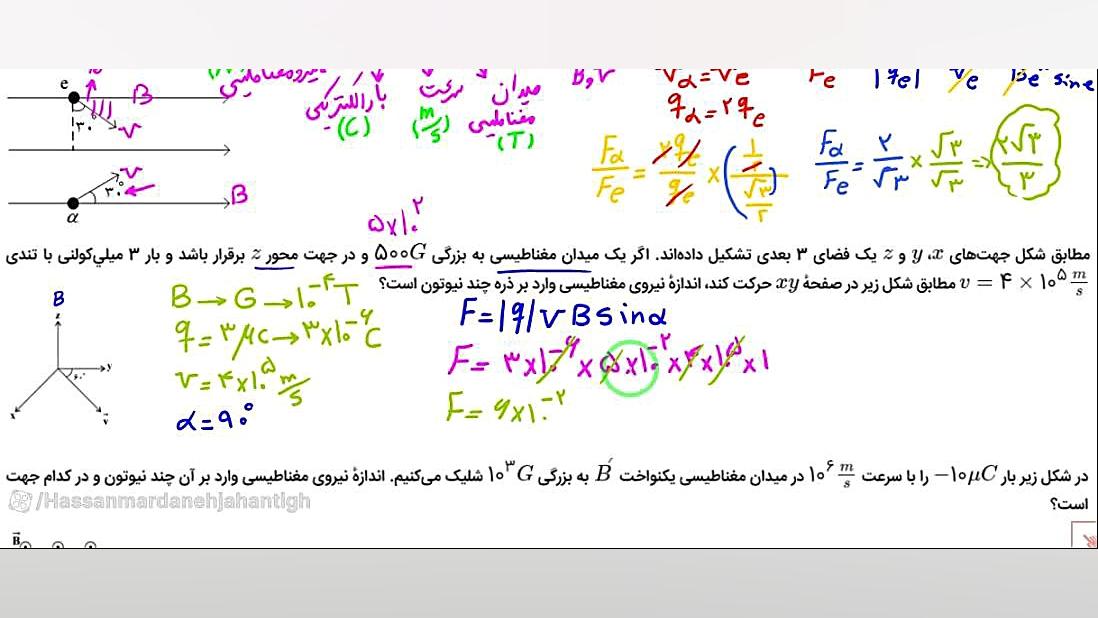 e
B
۳۰
V
B
V
۳۰°
α
نیرو مغناطیسی
بار الکتریکی
(C)
سرعت
(m/s)
میدان
مغناطیسی
(T)
B,V
Vα = Ve
qα = ۲qe
Fe |qe| Ve Be sine
Fα/Fe = ۲qe/qe × (
Fα/Fe = ۲/√۳ × √۳/√۳ => ۲√۳/۳
۵×۱۰^۲
مطابق شکل جهت‌های x، y و z یک فضای ۳ بعدی تشکیل داده‌اند. اگر یک میدان مغناطیسی به بزرگی ۵۰۰G و در جهت محور z برقرار باشد و بار ۳ میلی‌کولنی با تندی
v = ۴ × ۱۰^۵ m/s مطابق شکل زیر در صفحهٔ xy حرکت کند، اندازهٔ نیروی مغناطیسی وارد بر ذره چند نیوتون است؟
B
z
y
۶۰°
x
v
B → G → ۱۰^-۴ T
q = ۳ μC → ۳×۱۰^-۶ C
V = ۴×۱۰^۵ m/s
α = ۹۰°
F = |q| V B sinα
F = ۳×۱۰^-۶ × ۵×۱۰^-۲ × ۴×۱۰^۵ × ۱
F = ۶×۱۰^-۲
در شکل زیر بار −۱۰μC را با سرعت ۱۰^۶ m/s در میدان مغناطیسی یکنواخت B به بزرگی ۱۰^۳ G شلیک می‌کنیم. اندازهٔ نیروی مغناطیسی وارد بر آن چند نیوتون و در کدام جهت
است؟
/Hassanmardanehjahantigh
B